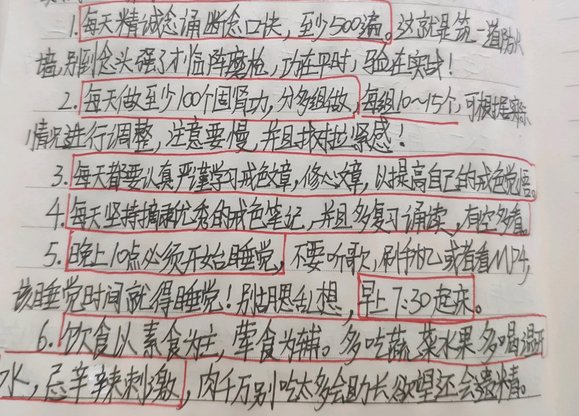 1. 每天精诚念诵断念口诀，至少500遍。这就是筑一道防火
墙，别到念头强了才临阵磨枪，功在平时，验在实战！
2. 每天做至少100个固肾功，分多组做，每组10~15个，可根据实际
情况进行调整，注意要慢，并且找对拉紧感！
3. 每天都要认真严谨学习戒色文章，修心文章，以提高自己的戒色觉悟。
4. 每天坚持摘录优秀的戒色笔记，并且多复习诵读，有空多看。
5. 晚上10点必须开始睡觉，不要听歌，刷手机或者看MP4，
该睡觉时间就得睡觉！别胡思乱想，早上7:30起床。
6. 饮食以素食为主，荤食为辅。多吃蔬菜水果多喝温开
水，忌辛辣刺激，肉千万别吃太多会助长欲望还会遗精。